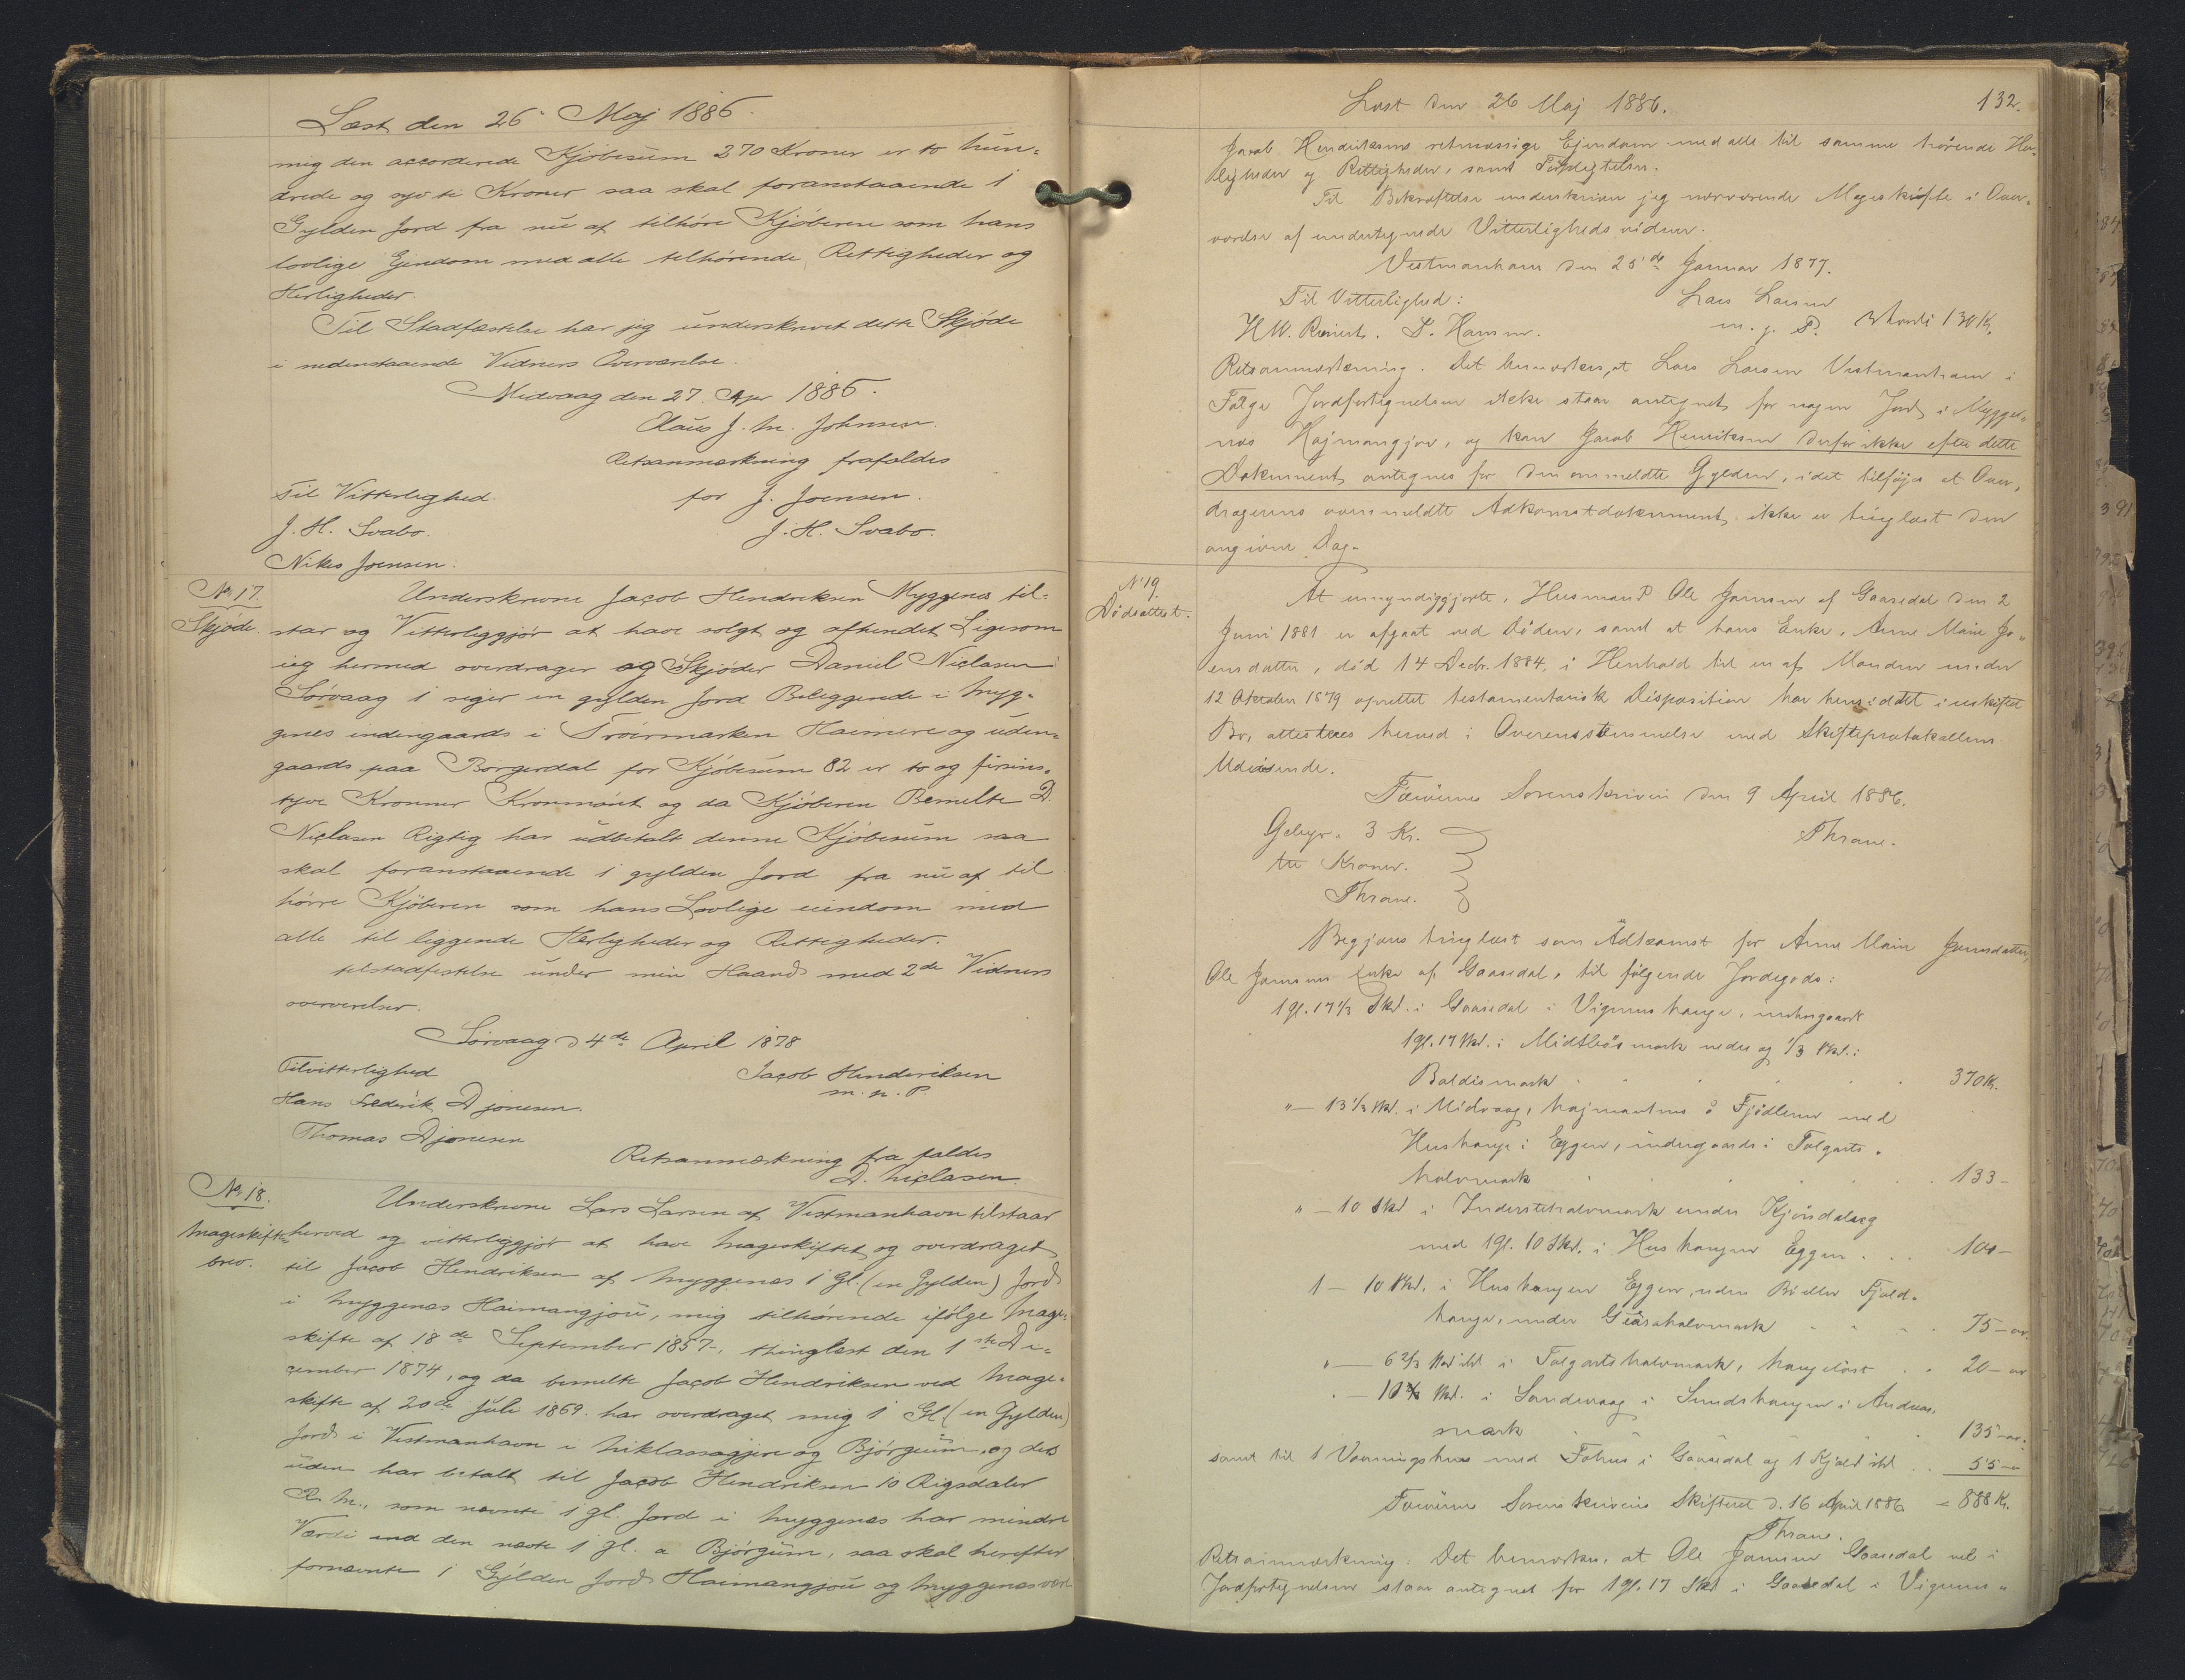 Læst den 26 Maj 1886.
mig den accorderede Kjöbesum 270 Kroner er to hun-
drede og syvti Kroner saa skal foranstaaende 1
Gylden Jord fra nu af tilhöre Kjöberen som hans
lovlige Ejendom med alle tilhörende Rettigheder og
Herligheder.
Til Stadfæstelse har jeg underskrevet dette Skjöde
i nedenstaaende Vidners Overværelse.
Midvaag den 27. Apr 1886.
Claus J. M. Johnsen.
Retsanmærkning frafaldes
Til Vitterlighed. for J. Joensen.
J. H. Svabo. J. H. Svabo.
Nikes Joensen.
No 17. Underskrevne Jacob Hendriksen Myggenes til-
Skjöde. star og Vitterliggjör at have solgt og afhendet Ligesom
ieg hermed overdrager og Skjöder Daniel Niclasen
Sörvaag 1 siger en gylden Jord Beliggende i Myg-
genes indengaards i Tröirmarken Haimere og uden-
gaards paa Borgerdal for Kjöbesum 82 er to og firsins-
tyve Kronner Kronmönt og da Kjöberen Bemelte D.
Niclasen Rigtig har udbetalt denne Kjöbesum saa
skal foranstaaende 1 gylden Jord fra nu af til
hörre Kjöberen som hans Lovlige eiendom med
alle til liggende Herligheder og Rettigheder.
tilstadfestelse under min Haand med 2de Vidners
oververelser.
Sörvaag d 4de April 1878
Tilvitterlighed Jacob Henderiksen
Hans Frederik Djonesen. m. p. P.
Thomas Djonesen
Retsanmærkning fra faldes
D. Niclasen.
No 18. Underskrevne Lars Larsen af Vestmanhavn tilstaar
Mageskifte- herved og vitterliggjör at have Mageskiftet og overdraget
brev. til Jacob Hendriksen af Myggenæs 1 gl. (en Gylden) Jord
i Myggenæs Haimangjou, mig tilhörende ifölge Mage-
skifte af 18de September 1857, thinglæst den 1ste De-
cember 1874, og da bemelte Jacob Hendriksen ved Mage-
skifte af 20de Juli 1869. har overdraget mig 1 Gl (en Gylden)
Jord i Vestmanhavn i Niklaasagjere og Björgum, og des
uden har betalt til Jacob Hendriksen 10 Rigsdaler
R. M., som nævnte 1 gl. Jord i Myggenæs har mindre
Værdi end den nævte 1 gl. a Björgum, saa skal herefter
fornævnte 1 Gylden Jord Haimangjou og Myggenæs være
Læst den 26 Maj 1886. 132.
Jacob Hendriksens retmæssige Ejendom med alle til samme hörende Her-
ligheder og Rettigheder, samt Forpligtelser.
Til Bekræftelse underskriver jeg nærværende Mageskifte i Over-
værelse af undertegnede Vitterligheds vidner.
Vestmanhavn den 25de Januar 1877.
Til Vitterlighed: Lars Larsen
H. W. Reinert. S. Hansen. m. p. P. Værdi 130 Kr.
Retsanmærkning. Det bemærkes, at Lars Larsen Vestmanhavn i
Fölge Jordfortegnelsen ikke staar antegnet for nogen Jord i Mygge-
næs Hajmangjov, og kan Jacob Henriksen derfor ikke efter dette
Dokument antegnes for den ommeldte Gylden, idet tilföjes at Over-
dragerens ovenmeldte Adkomstdokument ikke er tinglæst den
angivne Dag.
No 19. At umyndiggjorte, Husmand Ole Joensen af Gaasedal den 2
Dödsattest. Juni 1881 er afgaaet ved Döden, samt at hans Enke, Anne Marie Jo-
ensdatter, död 14 Decbr. 1884, i Henhold til en af Manden under
12 Oktober 1879 oprettet testamentarisk Disposition har hensiddet i uskiftet
Bo, attesteres herved i Overensstemmelse med Skifteprotokollens
Udvisende.
Færöernes Sorenskriveri den 9 April 1886.
Gebyr. 3 Kr. Thrane.
tre Kroner.
Thrane.
Begjæres tinglæst som Adkomst for Anne Marie Joensdatter,
Ole Joensens Enke af Gaasedal, til fölgende Jordegods:
1 gl. 17 1/3 Skd. i Gaasedal i Vigerus hauge, indengaards
1 gl. 17 Skd. i Midtbösmark neder og 1/3 Skd. i
Baldismark 370 Kr.
" — 13 1/3 Skd. i Midvaag, hajmantus å Fjödlerne med
Hushauge i Eggen, indengaards i Talgarts-
halvmark 133 -
" — 10 Skd i Inderstehalvmark under Kjörsdaleg
med 1 gl. 10 Skd. i Hus haugen Eggen 100 —
1 — 10 Skd. i Hus haugen Eggen, uden Böellen Fjæld-
hauge, under Giåsahalvmark 75 —
" — 6 2/3 Skd i Talgartshalvmark, haugelöst 20 —
" — 10 Skd. i Sandevaag i Sundshaugen i Andreas-
mark 135 —
samt til 1 Vaaningshus med Fæhus i Gaasedal og 1 Kjæld 55 —
Færöernes Sorenskriveris Skifteret d. 16 April 1886 = 888 Kr.
Thrane.
Retsanmærkning: Det bemærkes, at Ole Joensen Gaasedal vel i
Jordfortegnelsen staar antegnet for 1 gl. 17 Skd i Gaasedal i Vigerus-